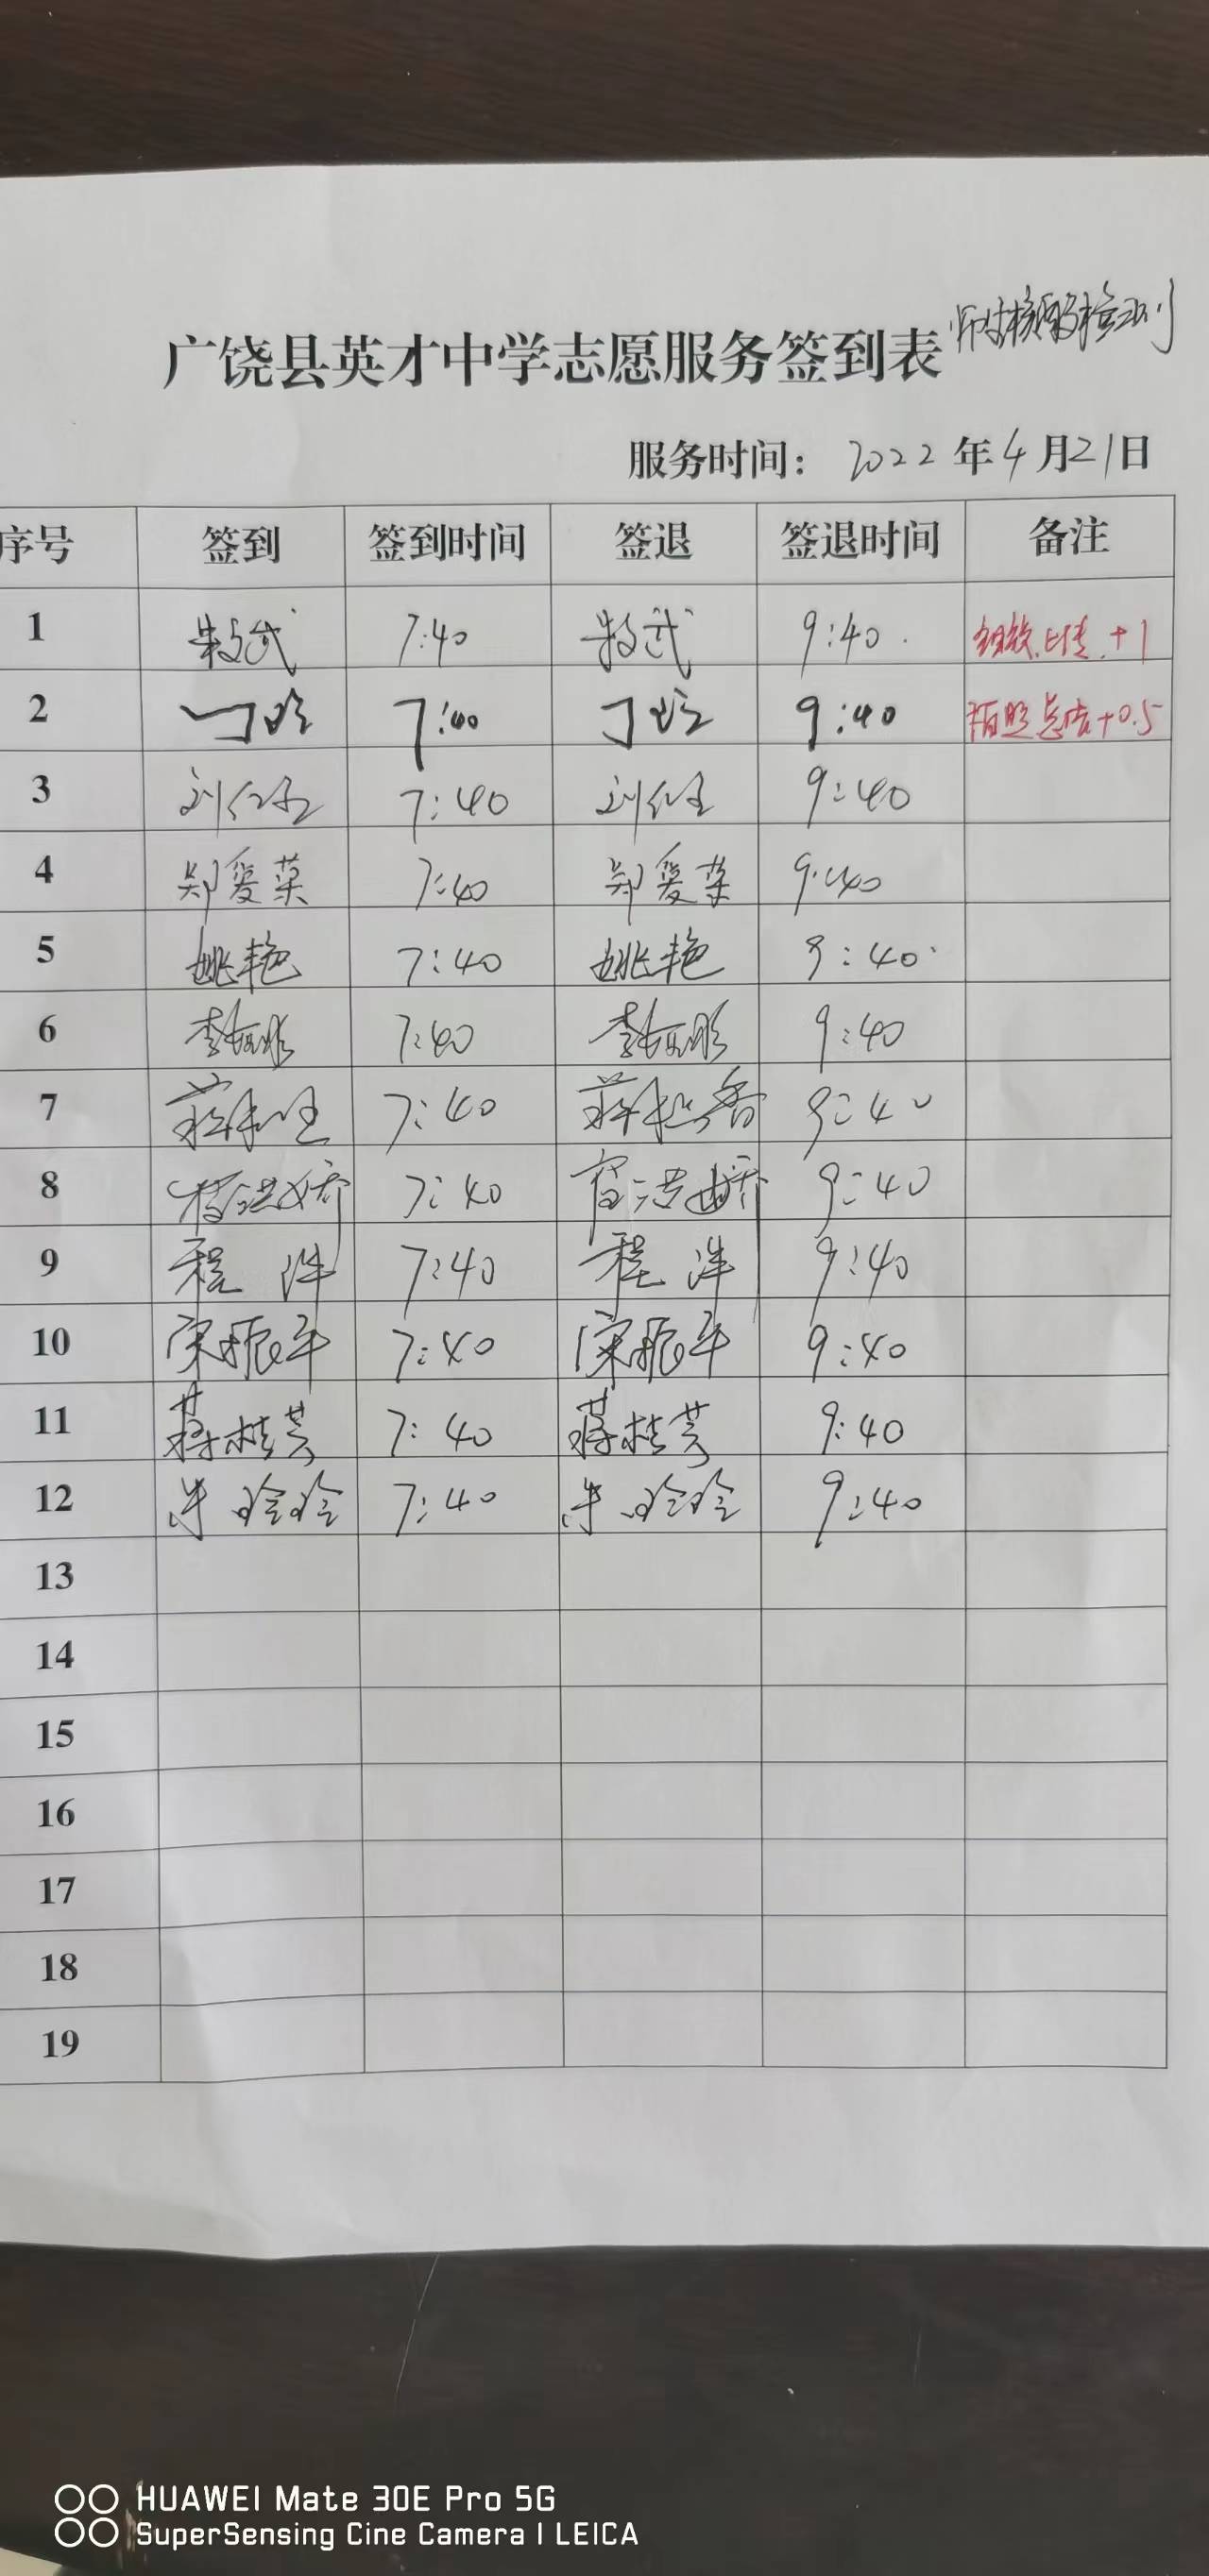 广饶县英才中学志愿服务签到表 核酸检测
服务时间: 2022年4月21日
序号 签到 签到时间 签退 签退时间 备注
1 7:40 9:40 +1
2 丁玲 7:40 丁玲 9:40 拍照总结+0.5
3 7:40 9:40
4 郑爱菜 7:40 郑爱菜 9:40
5 姚艳 7:40 姚艳 9:40
6 7:40 9:40
7 7:40 9:40
8 7:40 9:40
9 程洋 7:40 程洋 9:40
10 宋振平 7:40 宋振平 9:40
11 蒋桂芳 7:40 蒋桂芳 9:40
12 牛玲玲 7:40 牛玲玲 9:40
13
14
15
16
17
18
19
HUAWEI Mate 30E Pro 5G
SuperSensing Cine Camera | LEICA